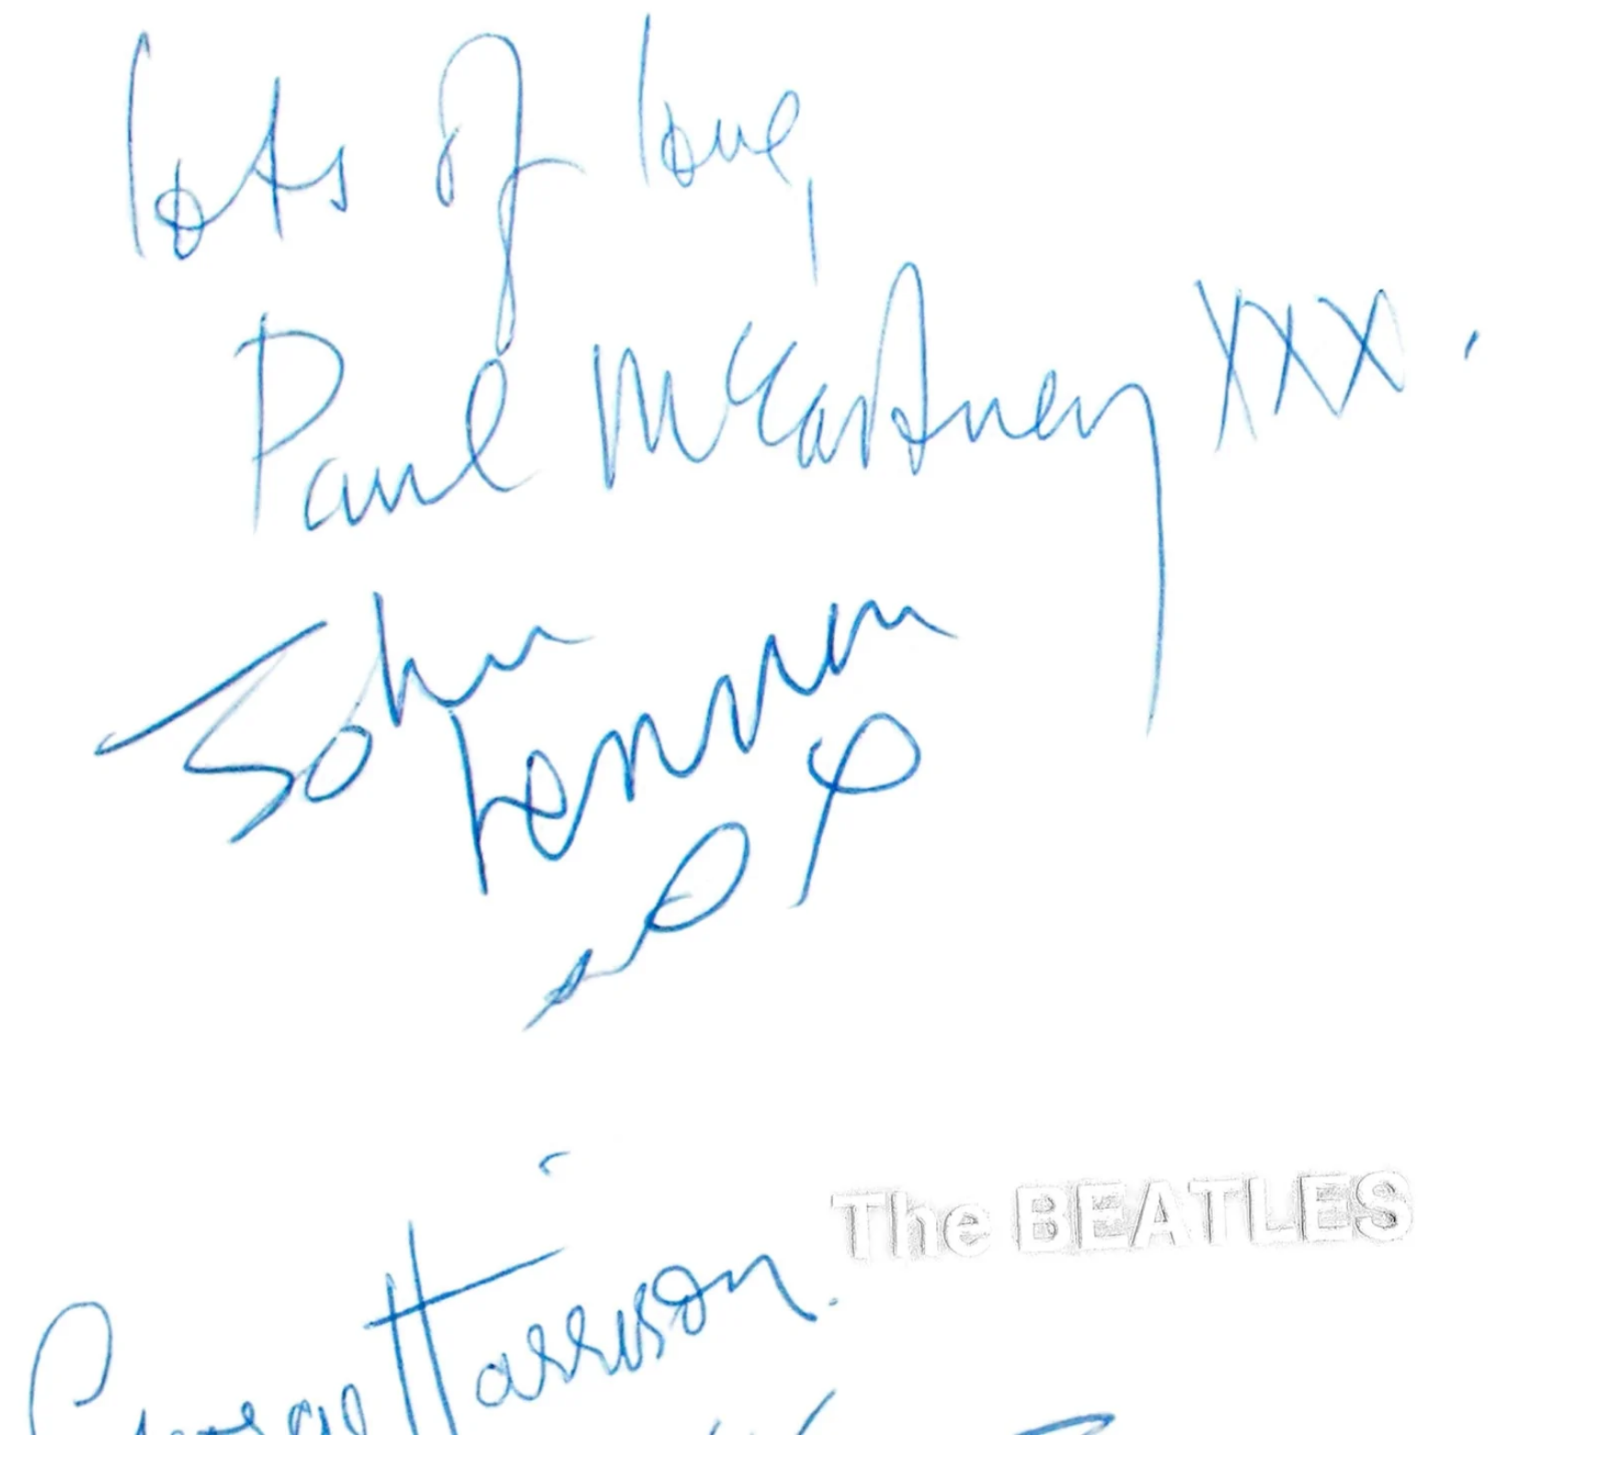 lots of love,
Paul McCartney XXX.
John
Lennon
The BEATLES
George Harrison.